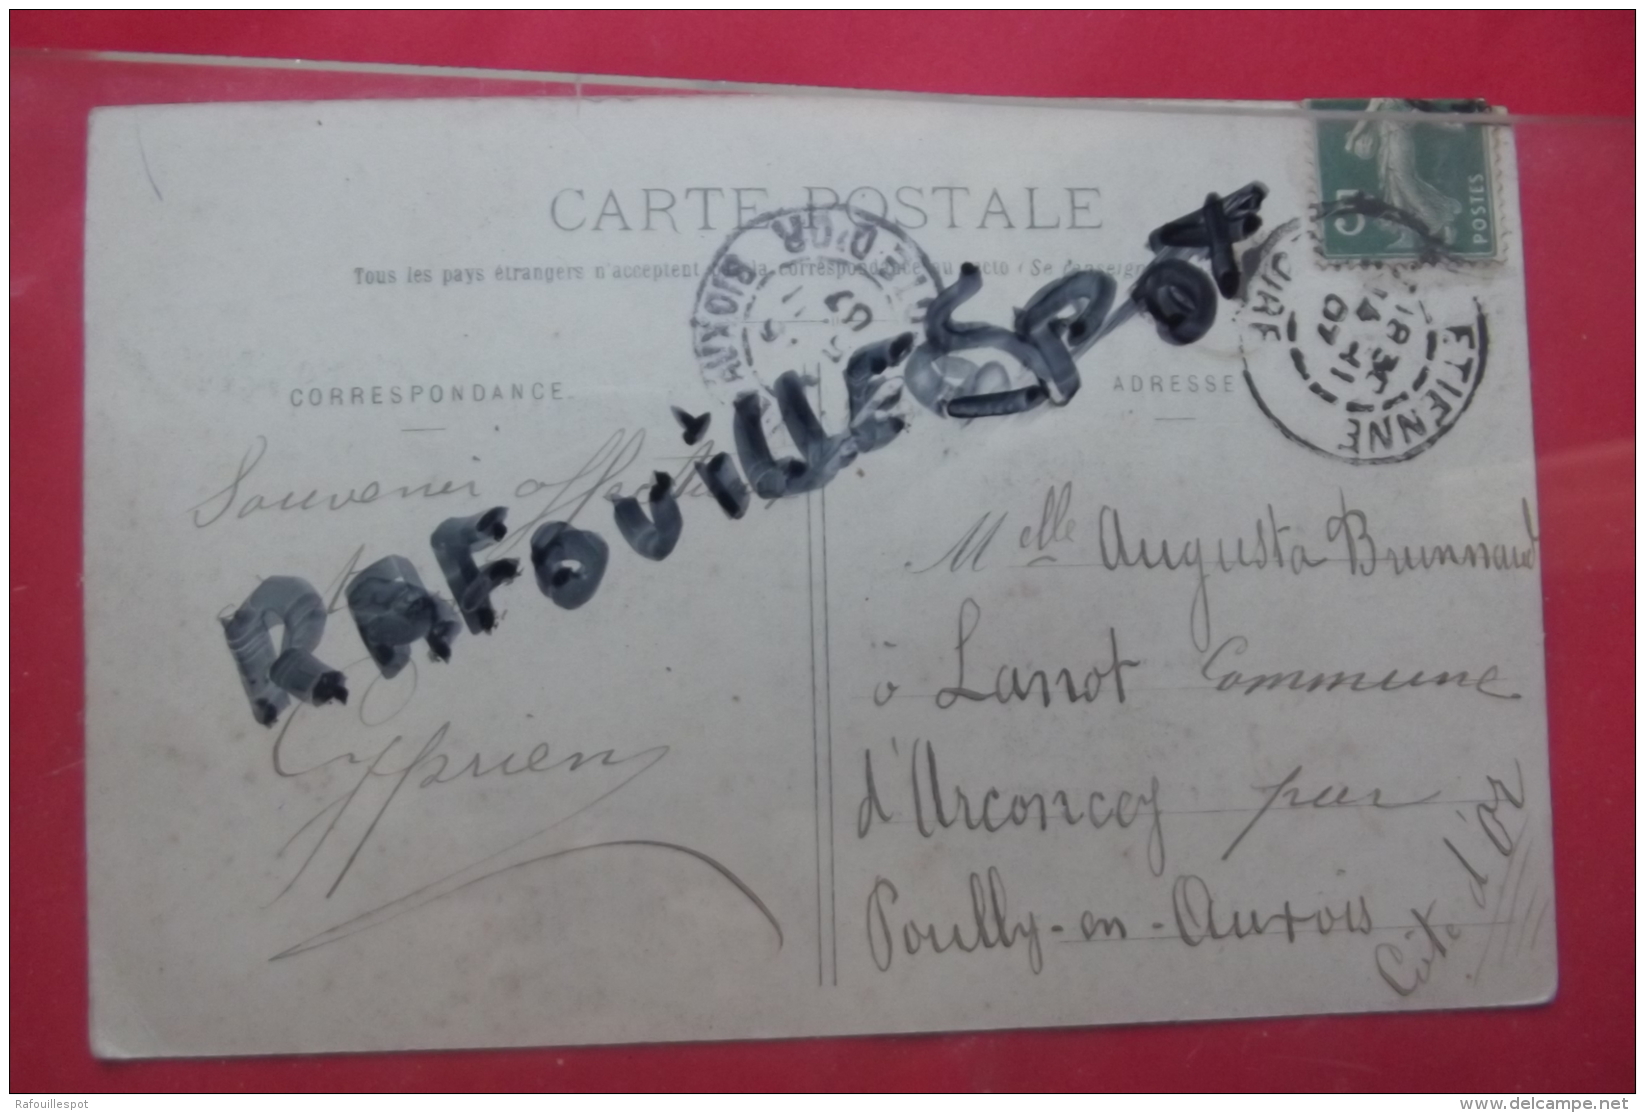 CARTE POSTALE
Tous les pays étrangers n'acceptent la correspondance au recto (Se renseign
CORRESPONDANCE
ADRESSE
POSTES
AUXOIS
CÔTE-D'OR
07
ETIENNE
18 30
14 -11
07
RAFOUILLESPOT
Souvenir affectueux
Cyprien
Melle Augusta Brunnaud
à Lanot Commune
d'Arconcey par
Pouilly-en-Auxois
Côte d'Or
Rafouillespot
delcampe.net